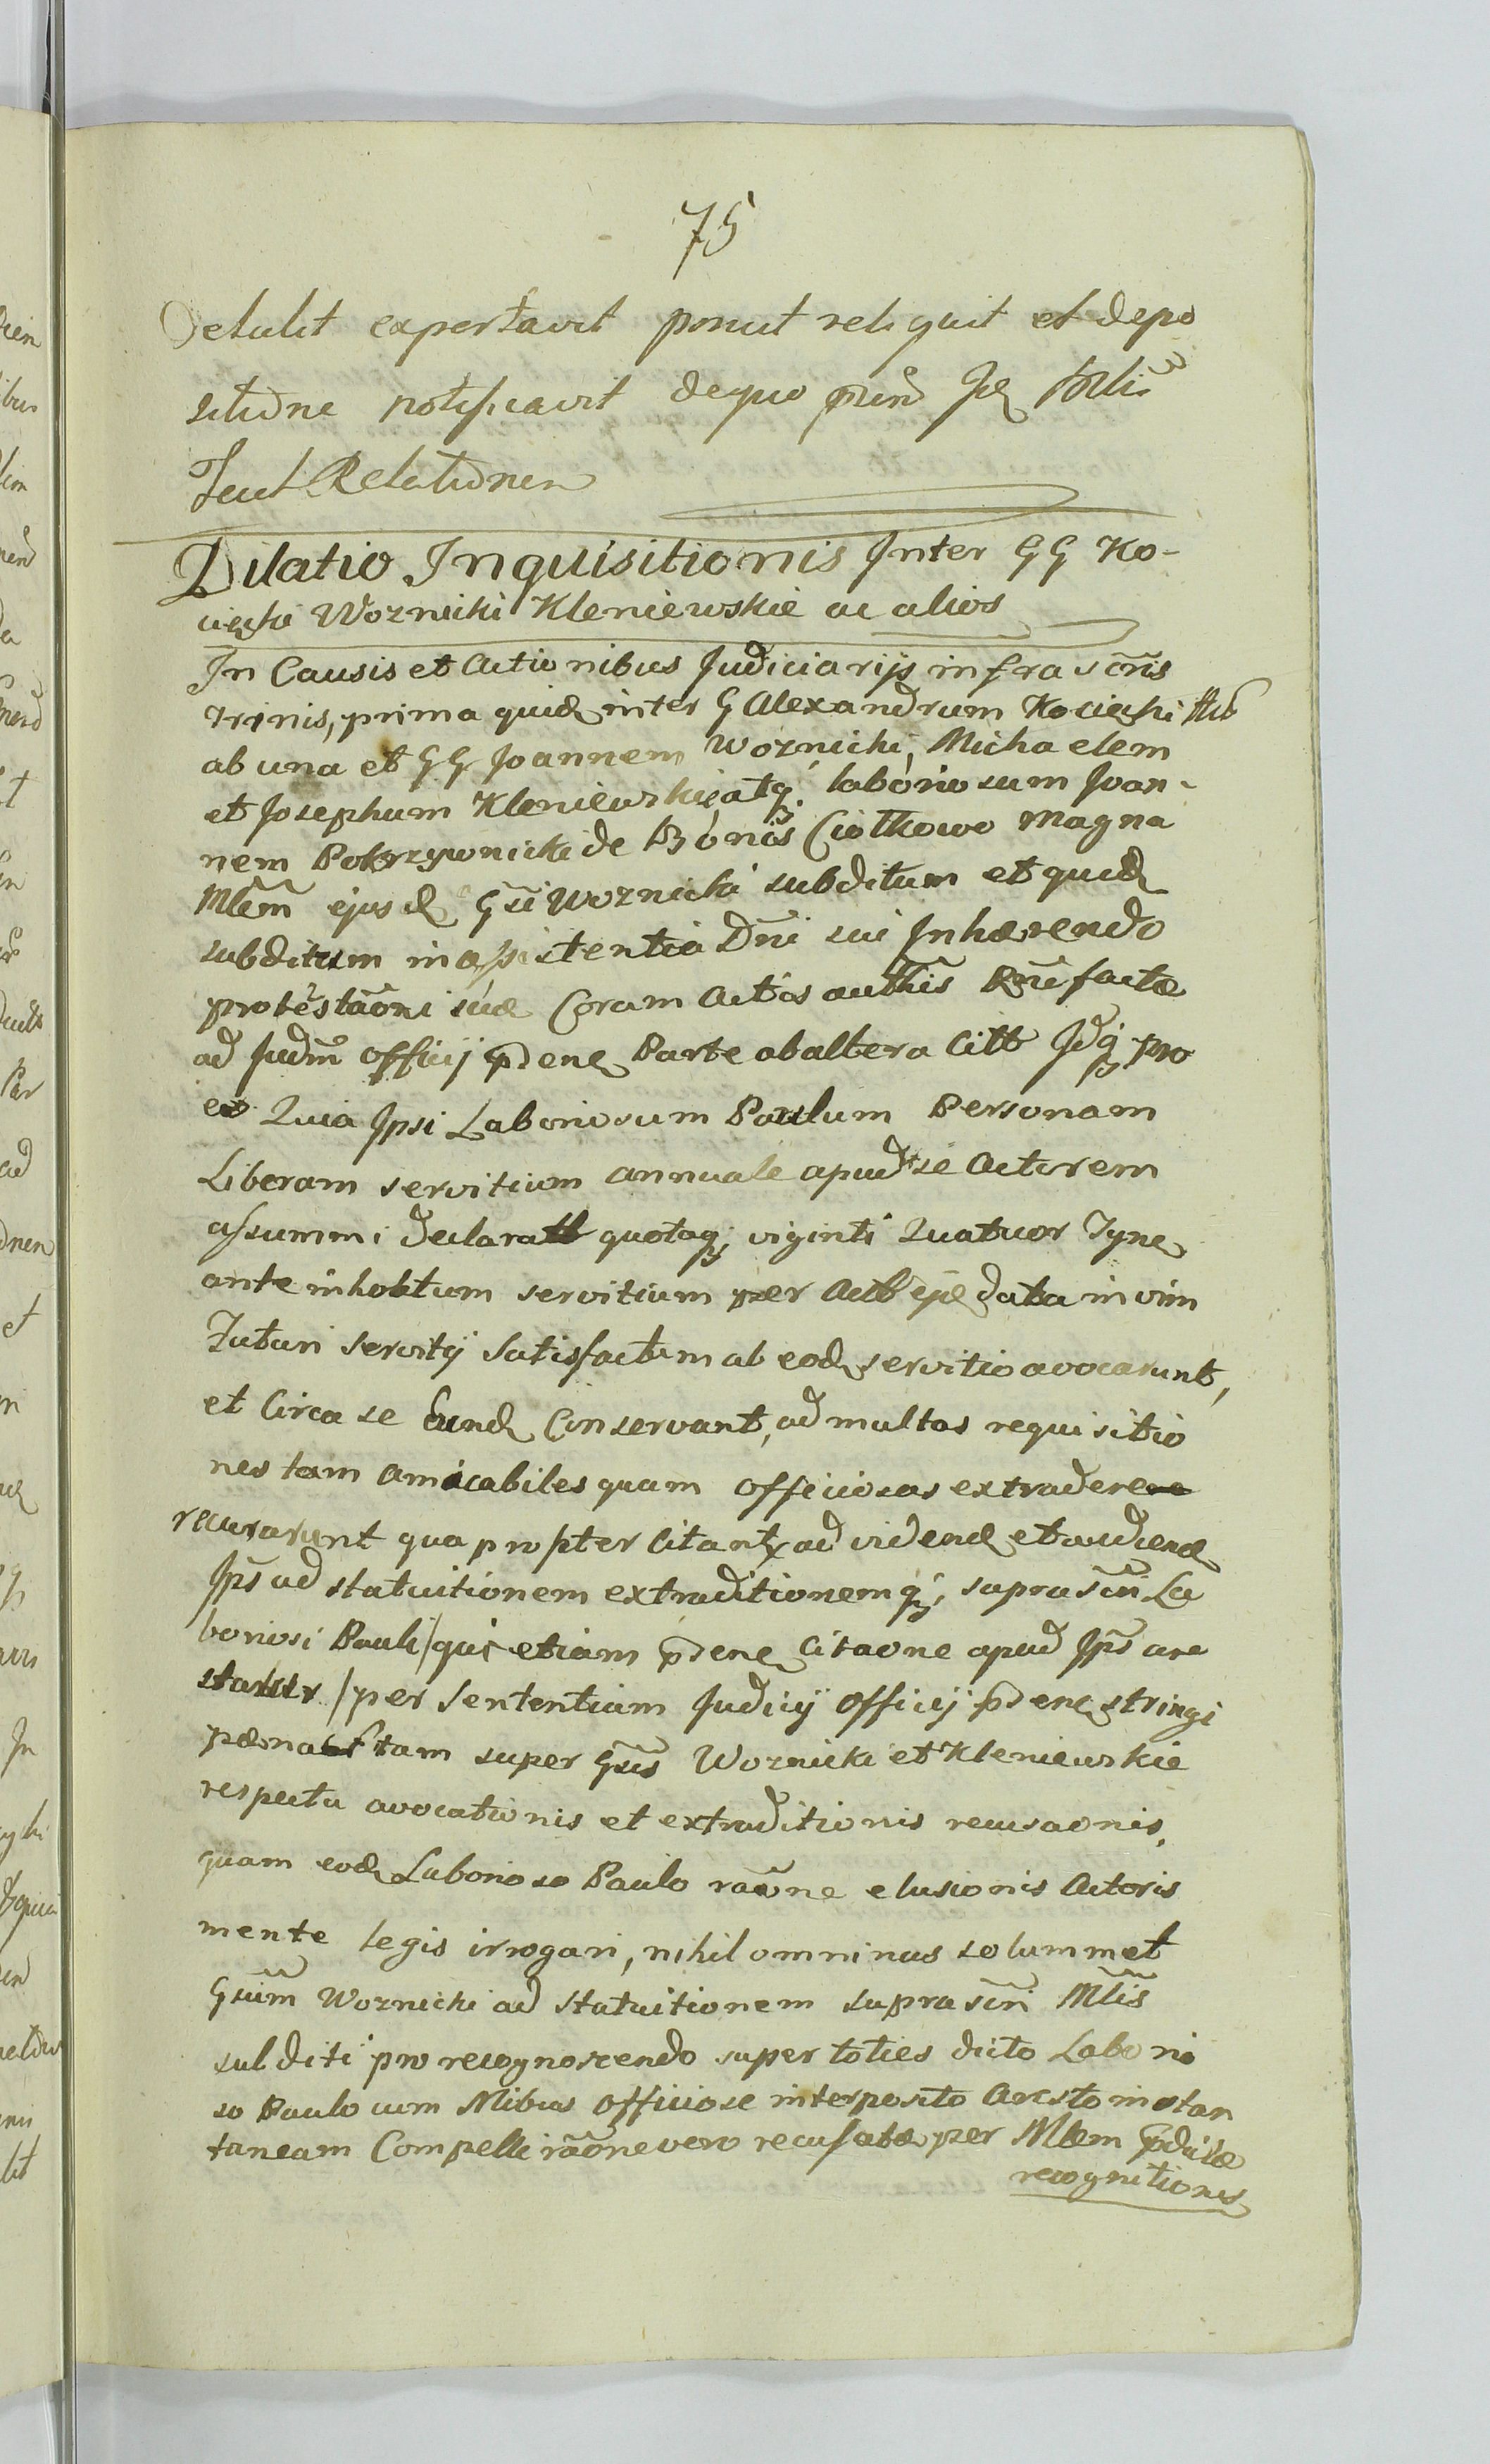 75
Detulit exportavit ponut reliquit et depo
sitione notificavit dequo
Fecit Relationem
Dilatio Inquisitionis Inter GG Ko-
ciески Woznicki Kleniewskie ac alios
In Causis et Actionibus Judiciarijs infra scris
trinis, prima quid inter G Alexandrum Kocięski Act
ab una et GG Joannem Woznicki, Michaelem
et Josephum Kleniewskie atq laboriosum Joan-
nem Pokrzywnicki de Bonis Ciołkowo Magna
Mlem ejusd Gsi Woznicki subditum et quid
subditum in assistentia Dni sui Inhærendo
protestaoni suæ Coram Actis authis Rni factæ
ad Judm Officij pdene Parte ab altera Citt Idq pro
eo Quia Ipsi Laboriosum Paulum Personam
Liberam servitium annuale apud se Actorem
assummi declaratt quotaq viginti Quatuor Tyne
ante inhoatum servitium per Act ejd data in vim
Futuri servitij Satisfactum ab eod servitio avocarunt,
et Circa se Eund Conservant, ad multas requisitio
nes tam amicabiles quam officiosas extradere
recusarunt qua propter Citantr ad vidend et audiend
Ips ad statuitionem extraditionemq suprascri La
boriosi Pauli /qui etiam pdene Citaone apud Ips are
statur /per Sententiam Judicij Officij pdene stringi
pænas tam super Gsos Woznicki et Kleniewskie
respectu avocationis et extraditionis recusaonis,
quam eod Laborioso Paulo raone elusionis Actoris
mente legis irrogari, nihilominus solummet
Gsum Woznicki ad statuitionem suprascri Mlis
subditi pro recognoscendo super toties dicto Laborio
so Paulo cum Mibus officiose interposito Aresto instan
taneam Compelli raone vero recusatæ per Mlem pdictæ
recognitionis